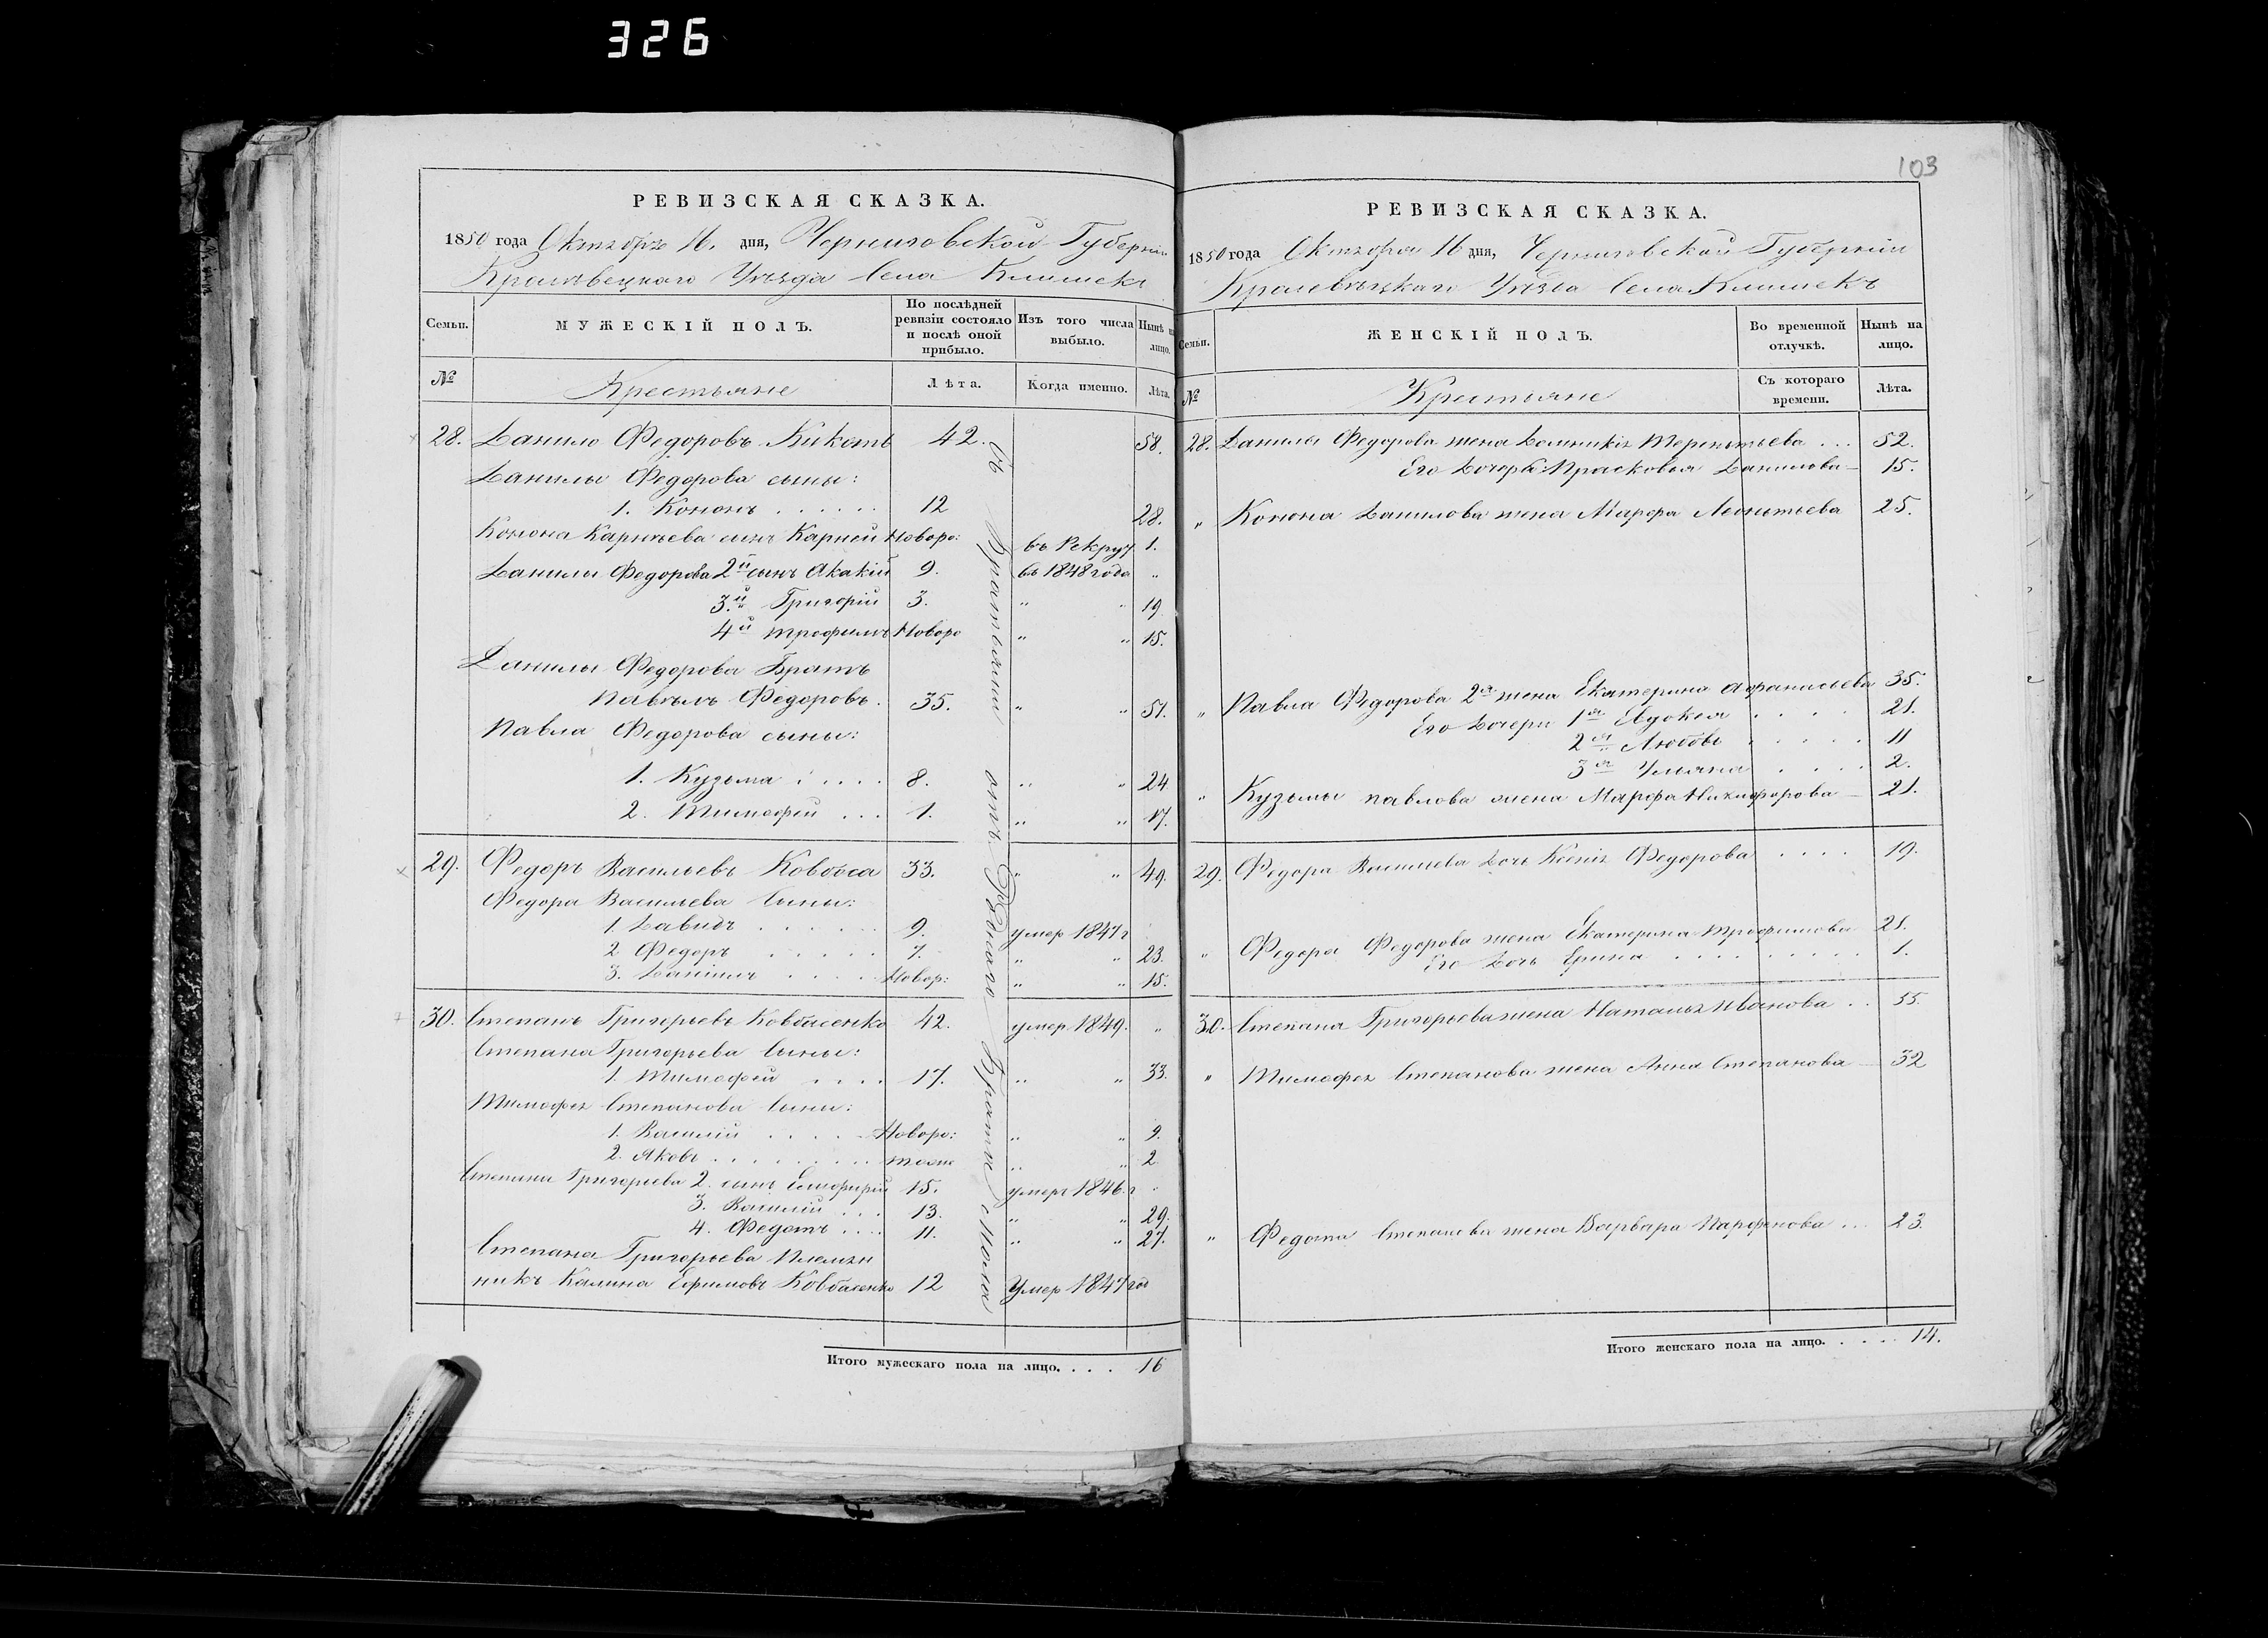 326
103
РЕВИЗСКАЯ СКАЗКА.
1850 года Октября 16. дня, Черниговской Губерніи
Кролевецкаго Уѣзда Села Клишекъ
Семьи. МУЖЕСКІЙ ПОЛЪ. По послѣдней ревизіи состояло и послѣ оной прибыло. Изъ того числа выбыло. Нынѣ на лицо.
№ Крестьяне Лѣта. Когда именно. Лѣта.
28. Данило Федоровъ Кикоть 42. 58.
Данилы Федорова сыны:
1. Кононъ . . . . . . 12 28.
Конона сынъ Карпей Новоро: 1.
Данилы Федорова 2й сынъ Акакій 9. въ Рекруч въ 1848 года "
3.й Григорій 3. " " 19.
4й Трофимъ Новоро " " 15.
Данилы Федорова Братъ
Павелъ Федоровъ. 35. " " 51.
Павла Федорова сыны:
1. Кузьма . . . . . 8. " " 24
2. Тимофей . . . 1. " " 17.
29. Федоръ Васильевъ Ковбаса 33. " " 49.
Федора Васильева Сыны:
1. Давидъ . . . . . . 9. умер 1847 г
2 Федоръ . . . . . 7. " " 23.
3. Даніилъ . . . . Новор: " " 15.
30. Степанъ Григорьевъ Ковбасенко 42. умер 1849. "
Степана Григорьева Сыны:
1. Тимофей . . . . 17. " " 33.
Тимофея Степанова Сыны:
1. Василій . . . . Новоро: " " 9.
2. Яковъ . . . . . . . . тоже " " 2
Степана Григорьева 2. сынъ 15. умеръ 1846. г
3. Василій . . . 13. " " 29.
4. Федотъ . . . . 11. " " 27.
Степана Григорьева Племян
никъ Калина Ефимовъ Ковбасенко 12 Умер 1847 год
Итого мужескаго пола на лицо. . . . 16
РЕВИЗСКАЯ СКАЗКА.
1850 года Октября 16 дня, Черниговской Губерніи
Кролевецкаго Уѣзда Села Клишекъ
Семьи. ЖЕНСКІЙ ПОЛЪ. Во временной отлучкѣ. Нынѣ на лицо.
№ Крестьяне Съ котораго времени. Лѣта.
28. Данилы Федорова жена Домникія Терентьева . . . 52.
Его Дочерь Прасковья Данилова 15.
" Конона Данилова жена Марфа Леонтьева 25.
" Павла Федорова 2я жена Екатерина Афанасьева 35.
Его Дочери 1я Евдокія . . . . 21.
2я Любовь . . . . . 11
3я Ульяна . . . . 2.
" Кузьмы павлова жена Марфа Никифорова 21.
29. Федора Васильева Дочь Ксенія Федорова . . . . 19.
" Федора Федорова жена Екатерина Трофимова 21.
Его Дочь Ерина . . . . . . . . . 1.
30. Степана Григорьева жена Наталья Иванова . . 55.
" Тимофея Степанова жена Анна Степанова 32
" Федота Степанова жена Варвара Парфенова . . . 23.
Итого женскаго пола на лицо. . . . . 14.